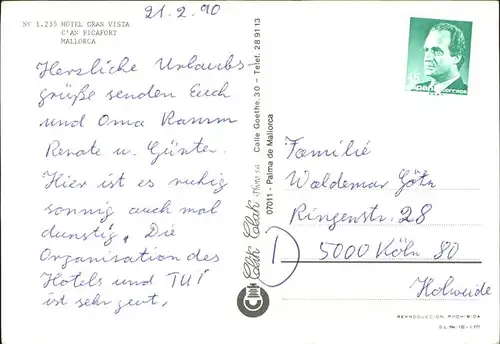 Nº 1.235 HOTEL GRAN VISTA
C'AN PICAFORT
MALLORCA
21.2.90
Herzliche Urlaubs-
grüße senden Euch
und Oma Ramm
Renate u. Günter.
Hier ist es ruhig
sonnig auch mal
dunstig. Die
Organisation des
Hotels und TUI
ist sehr gut.
Clik Clak
Calle Goethe, 30 - Telef. 28 91 13
07011 - Palma de Mallorca
España correos
Familie
Waldemar Götz
Ringenstr. 28
D 5000 Köln 80
Holweide
REPRODUCCION PROHIBIDA